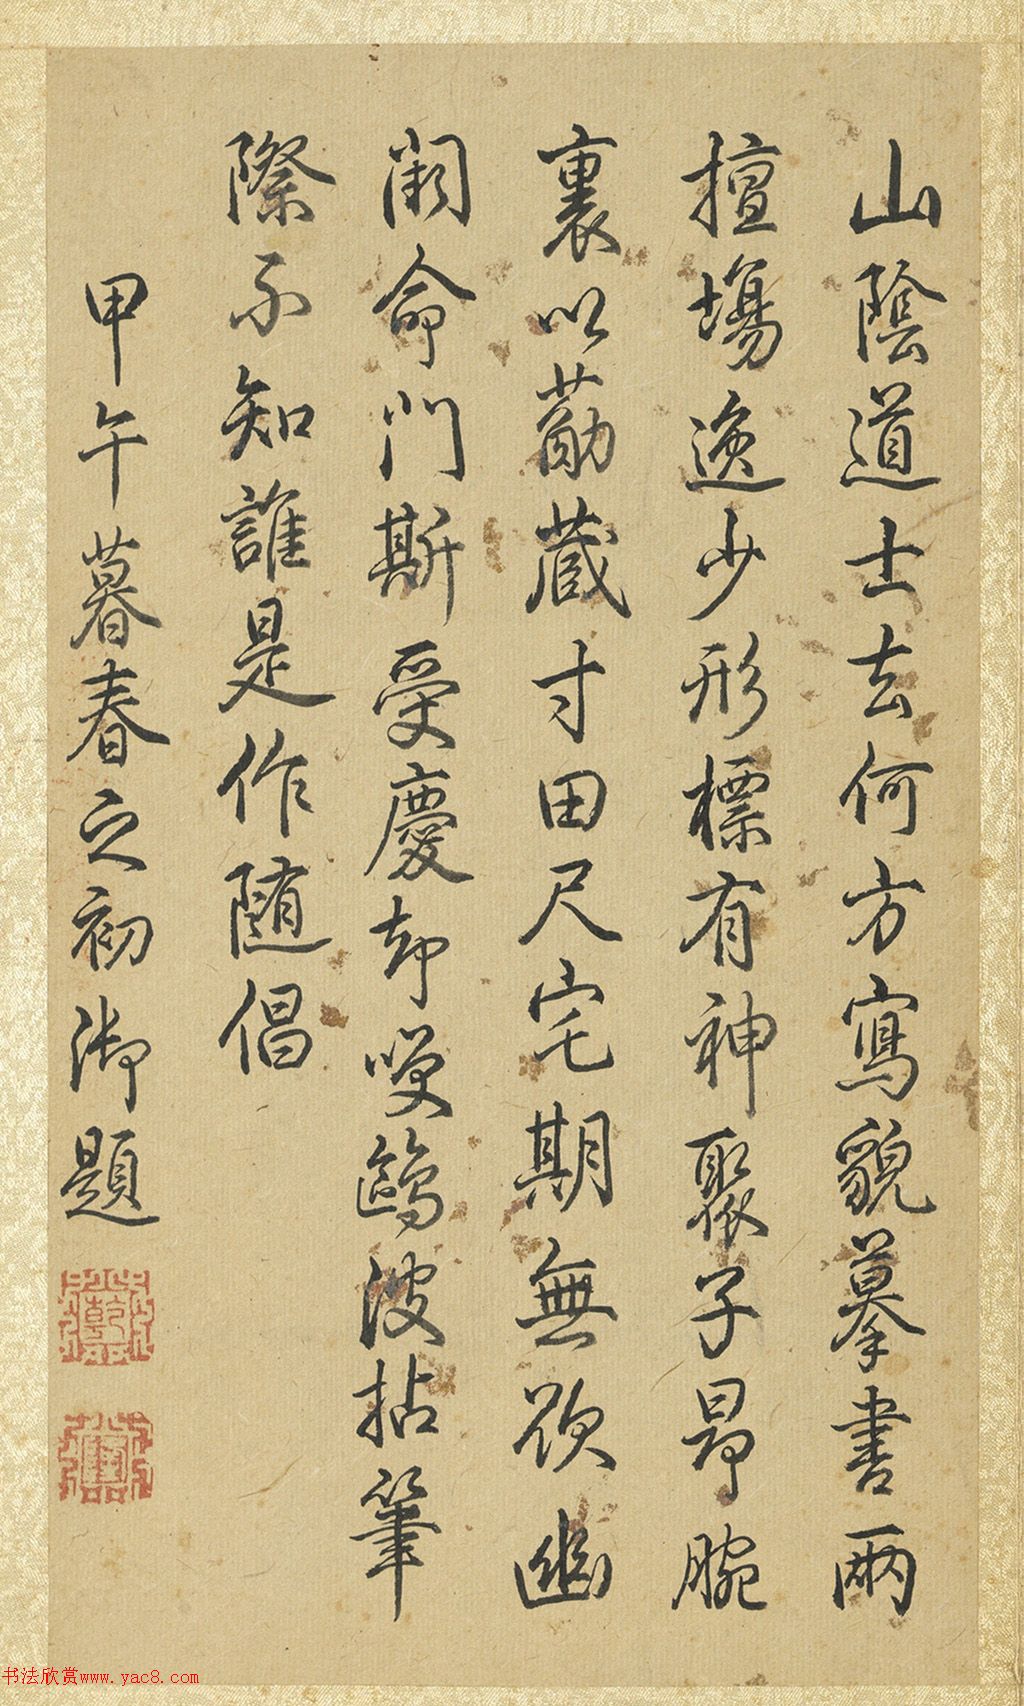 山陰道士去何方寫貌摹書兩
擅場逸少形標有神聚子昂腕
裏以勗藏寸田尺宅期無欲幽
闕命門斯受慶却哭鷗波拈筆
際不知誰是作随倡
甲午暮春之初御題
书法欣赏www.yac8.com